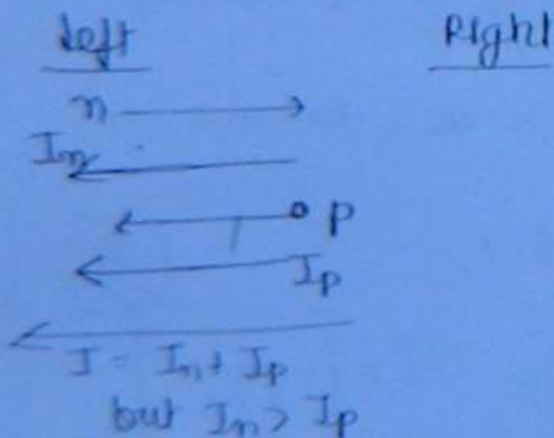 left Right
n
In
p
Ip
I = In + Ip
but In > Ip